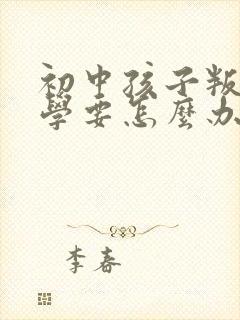 初中孩子叛
學要怎麼办
李春